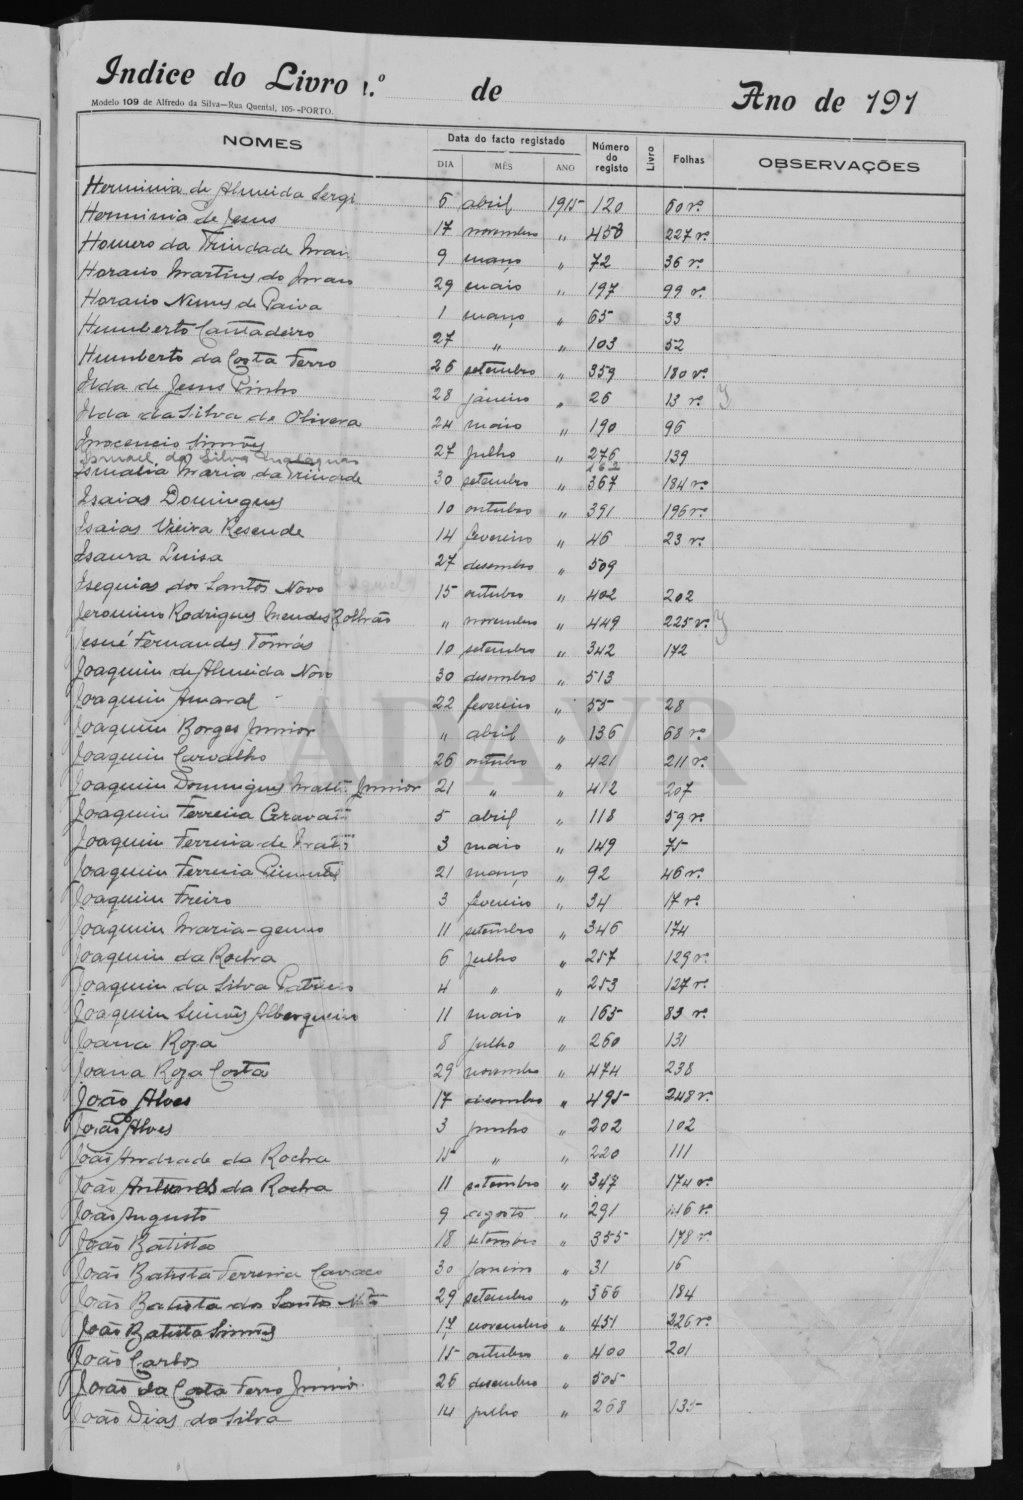 Indice do Livro n.º de Ano de 191
Modelo 109 de Alfredo da Silva—Rua Quental, 105--PORTO.
NOMES Data do facto registado Número do registo Livro Folhas OBSERVAÇÕES
DIA MÊS ANO
Herminia de Almeida Sergi 6 abril 1915 120 60 vº
Herminia de Jesus 17 novembro " 453 227 vº
Homero da Trindade 9 março " 72 36 vº
Horacio Martins do 29 maio " 197 99 vº
Horacio Nunes de Paiva 1 março " 65 33
Humberto Cantadeiro 27 " " 103 52
Humberto da Costa Ferro 26 setembro " 359 180 vº
Ilda de Jesus Pinho 28 janeiro " 26 13 vº
Ilda da Silva de Oliveira 24 maio " 190 96
Inocencio Simões 27 julho " 276 139
Ismael da Silva
Ismalia Maria da Trindade 30 setembro " 367 184 vº
Isaias Domingues 10 outubro " 391 196 vº
Isaias Vieira Resende 14 fevereiro " 46 23 vº
Isaura Luisa 27 dezembro " 509
Isequias dos Santos Novo 15 outubro " 402 202
Jeronimo Rodrigues Mendes Bolhão " novembro " 449 225 vº
Jesué Fernandes Tomás 10 setembro " 342 172
Joaquim de Almeida Novo 30 dezembro " 513
Joaquim Amaral 22 fevereiro " 55 28
Joaquim Borges Junior " abril " 136 68 vº
Joaquim Carvalho 26 outubro " 421 211 vº
Joaquim Domingues Junior 21 " " 412 207
Joaquim Ferreira 5 abril " 118 59 vº
Joaquim Ferreira de 3 maio " 149 75
Joaquim Ferreira Pimentel 21 março " 92 46 vº
Joaquim Freiro 3 fevereiro " 34 17 vº
Joaquim Maria-genno 11 setembro " 346 174
Joaquim da Rocha 6 julho " 257 129 vº
Joaquim da Silva Patricio 4 " " 253 127 vº
Joaquim Simões Albergueiro 11 maio " 165 83 vº
Joana Roza 8 julho " 260 131
Joana Roza Costa 29 novembro " 474 238
João Alves 17 dezembro " 495 248 vº
João Alves 3 junho " 202 102
João Andrade da Rocha 15 " " 220 111
João Antunes da Rocha 11 setembro " 347 174 vº
João Augusto 9 agosto " 291 146 vº
João Batista 18 setembro " 355 178 vº
João Batista Ferreira 30 janeiro " 31 16
João Batista dos Santos 29 setembro " 366 184
João Batista Simões 17 novembro " 451 226 vº
João Carlos 15 outubro " 400 201
João da Costa Ferro Junior 26 dezembro " 505
João Dias da Silva 14 julho " 268 135
ADAVR